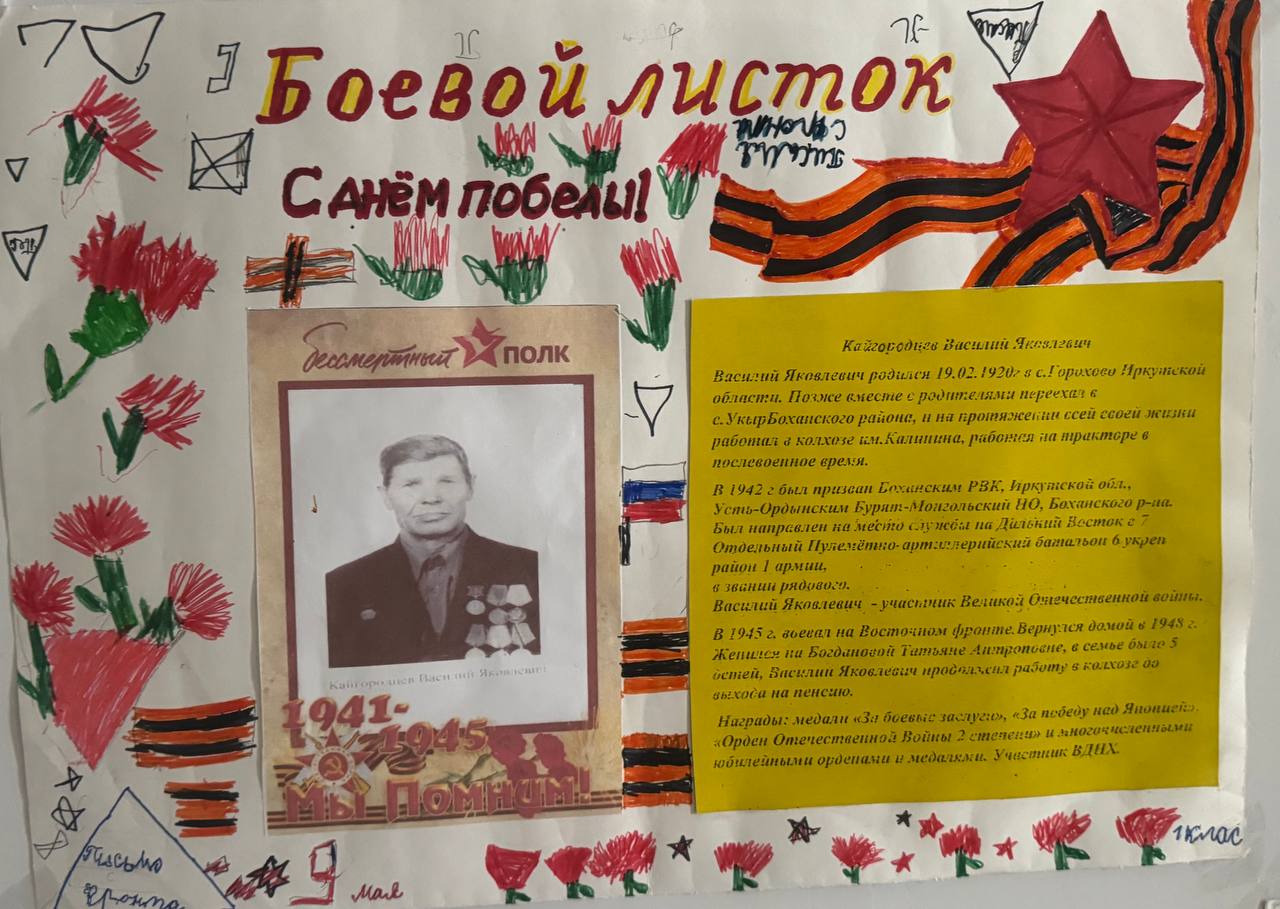 Боевой листок
С днём победы!
Письма
с фронта
бессмертный полк
Кайгородцев Василий Яковлевич
1941-
1945
Мы Помним!
Кайгородцев Василий Яковлевич
Василий Яковлевич родился 19.02.1920г в с.Горохово Иркутской
области. Позже вместе с родителями переехал в
с.УкырБоханского района, и на протяжении всей своей жизни
работал в колхозе им.Калинина, работал на тракторе в
послевоенное время.
В 1942 г был призван Боханским РВК, Иркутской обл.,
Усть-Ордынским Бурят-Монгольский НО, Боханского р-на.
Был направлен на место службы на Дальний Восток в 7
Отдельный Пулемётно-артиллерийский батальон 6 укреп
район 1 армии,
в звании рядового.
Василий Яковлевич - участник Великой Отечественной войны.
В 1945 г. воевал на Восточном фронте.Вернулся домой в 1948 г.
Женился на Богдановой Татьяне Антроповне, в семье было 5
детей, Василий Яковлевич продолжил работу в колхозе до
выхода на пенсию.
Награды: медали «За боевые заслуги», «За победу над Японией».
«Орден Отечественной Войны 2 степени» и многочисленными
юбилейными орденами и медалями. Участник ВДНХ.
Письмо
фронта
9 мая
1 клас